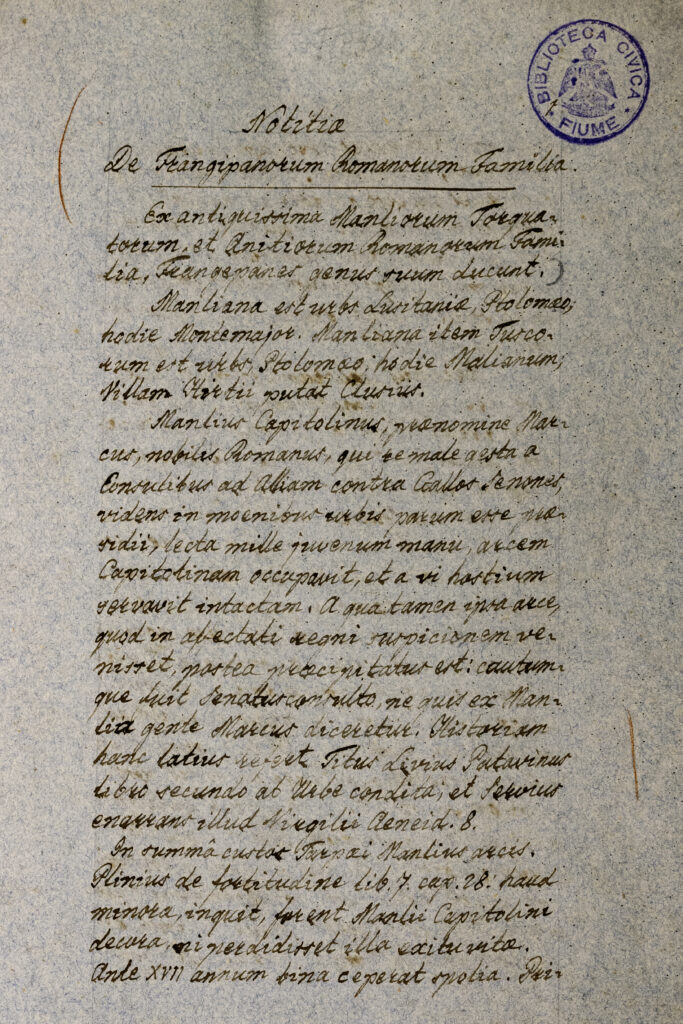 BIBLIOTECA CIVICA
FIUME
Notitiæ
De Frangipanorum Romanorum Familia.
Ex antiquissima Manliorum Torqua-
torum, et Anitiorum Romanorum Fami-
lia, Frangepanes genus suum ducunt.
Manliana est urbs Lusitaniæ, Ptolomæo;
hodie Montemajor. Manliana item Tusco-
rum est urbs, Ptolomæo; hodie Malianum;
Villam Hirtii putat Clusius.
Manlius Capitolinus, prænomine Mar-
cus, nobilis Romanus, qui re male gesta a
Consulibus ad Aliam contra Gallos Senones,
videns in moenibus urbis parum esse præ-
sidii, lecta mille juvenum manu, arcem
Capitolinam occupavit, et a vi hostium
servavit intactam. A qua tamen ipsa arce,
quod in affectati regni suspicionem ve-
nisset, postea præcipitatus est: cautum-
que fuit Senatusconsulto, ne quis ex Man-
lia gente Marcus diceretur. Historiam
hanc latius refert Titus Livius Patavinus
libro secundo ab Urbe condita; et Servius
enarrans illud Virgilii Aeneid. 8.
In summâ custos Tarpæi Manlius arcis.
Plinius de fortitudine lib. 7. cap. 28: haud
minora, inquit, forent Manlii Capitolini
decora, ni perdidisset illa exitu vitæ.
Ante XVII annum bina ceperat spolia. Pri-